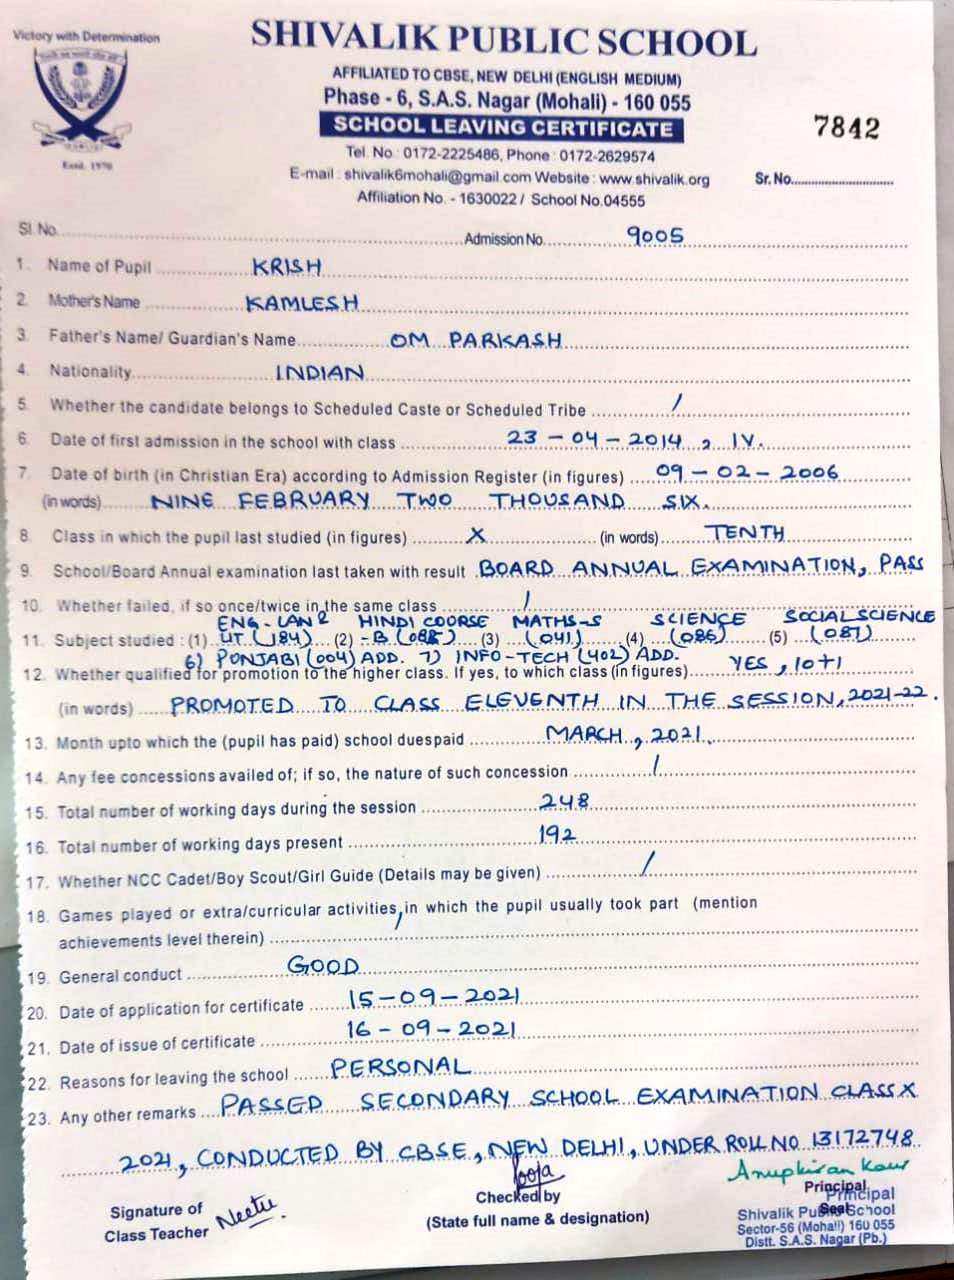 Victory with Determination
SHIVALIK PUBLIC SCHOOL
AFFILIATED TO CBSE, NEW DELHI (ENGLISH MEDIUM)
Phase - 6, S.A.S. Nagar (Mohali) - 160 055
SCHOOL LEAVING CERTIFICATE
7842
Tel. No : 0172-2225486, Phone : 0172-2629574
Estd. 1970
E-mail : shivalik6mohali@gmail.com Website : www.shivalik.org
Sr. No.
Affiliation No. - 1630022 / School No.04555
Sl. No. Admission No. 9005
1. Name of Pupil KRISH
2. Mother's Name KAMLESH
3. Father's Name/ Guardian's Name OM PARKASH
4. Nationality INDIAN
5. Whether the candidate belongs to Scheduled Caste or Scheduled Tribe /
6. Date of first admission in the school with class 23-04-2014, IV.
7. Date of birth (in Christian Era) according to Admission Register (in figures) 09-02-2006
(in words) NINE FEBRUARY TWO THOUSAND SIX.
8. Class in which the pupil last studied (in figures) X (in words) TENTH
9. School/Board Annual examination last taken with result BOARD ANNUAL EXAMINATION, PASS
10. Whether failed, if so once/twice in the same class /
ENG-LAN & HINDI COORSE MATHS-S SCIENCE SOCIALSCIENCE
11. Subject studied : (1) LIT (184) (2) -B (085) (3) (041) (4) (086) (5) (087)
6) PUNJABI (004) ADD. 7) INFO-TECH (402) ADD.
12. Whether qualified for promotion to the higher class. If yes, to which class (in figures) YES, 10+1
(in words) PROMOTED TO CLASS ELEVENTH IN THE SESSION, 2021-22.
13. Month upto which the (pupil has paid) school duespaid MARCH, 2021.
14. Any fee concessions availed of; if so, the nature of such concession /
15. Total number of working days during the session 248
16. Total number of working days present 192
17. Whether NCC Cadet/Boy Scout/Girl Guide (Details may be given) /
18. Games played or extra/curricular activities, in which the pupil usually took part (mention
achievements level therein) /
19. General conduct GOOD
20. Date of application for certificate 15-09-2021
21. Date of issue of certificate 16-09-2021
22. Reasons for leaving the school PERSONAL
23. Any other remarks PASSED SECONDARY SCHOOL EXAMINATION CLASS X
2021, CONDUCTED BY CBSE, NEW DELHI, UNDER ROLL NO 13172748.
Pooja
Anupkiran Kaur
Signature of
Class Teacher Neetu.
Checked by
(State full name & designation)
Principal
Seal
Principal
Shivalik Public School
Sector-56 (Mohali) 160 055
Distt. S.A.S. Nagar (Pb.)